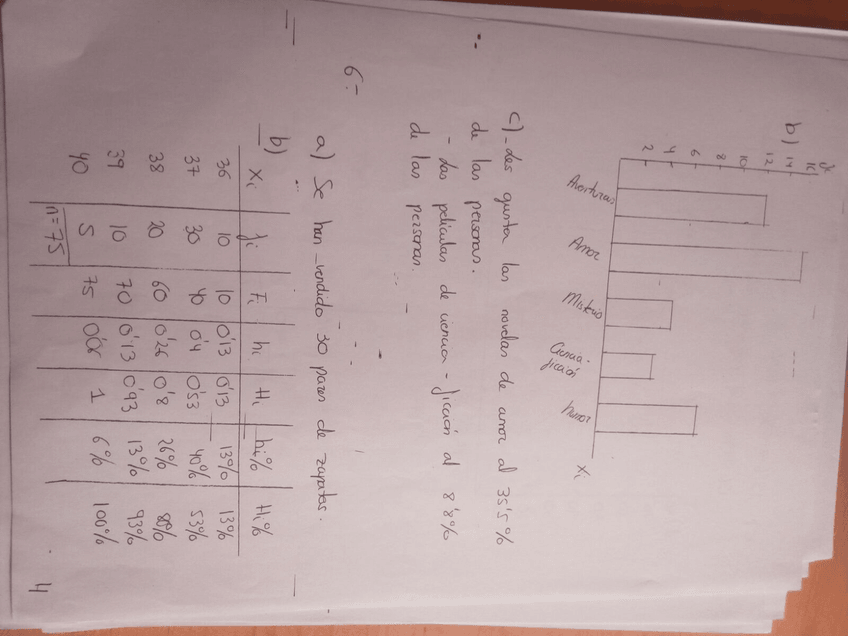 b)
fi
16
14
12
10
8
6
4
2
Aventuras Amor Misterio Ciencia- humor Xi
ficción
c) - Les gusta las novelas de amor al 35'5%
de las personas.
- Las películas de ciencia - ficción al 8'8%
de las personas.
6.-
a) Se han vendido 30 pares de zapatos.
b)
Xi fi Fi hi Hi hi% Hi%
36 10 10 0'13 0'13 13% 13%
37 30 40 0'4 0'53 40% 53%
38 20 60 0'26 0'8 26% 80%
39 10 70 0'13 0'93 13% 93%
40 5 75 0'06 1 6% 100%
n=75
4